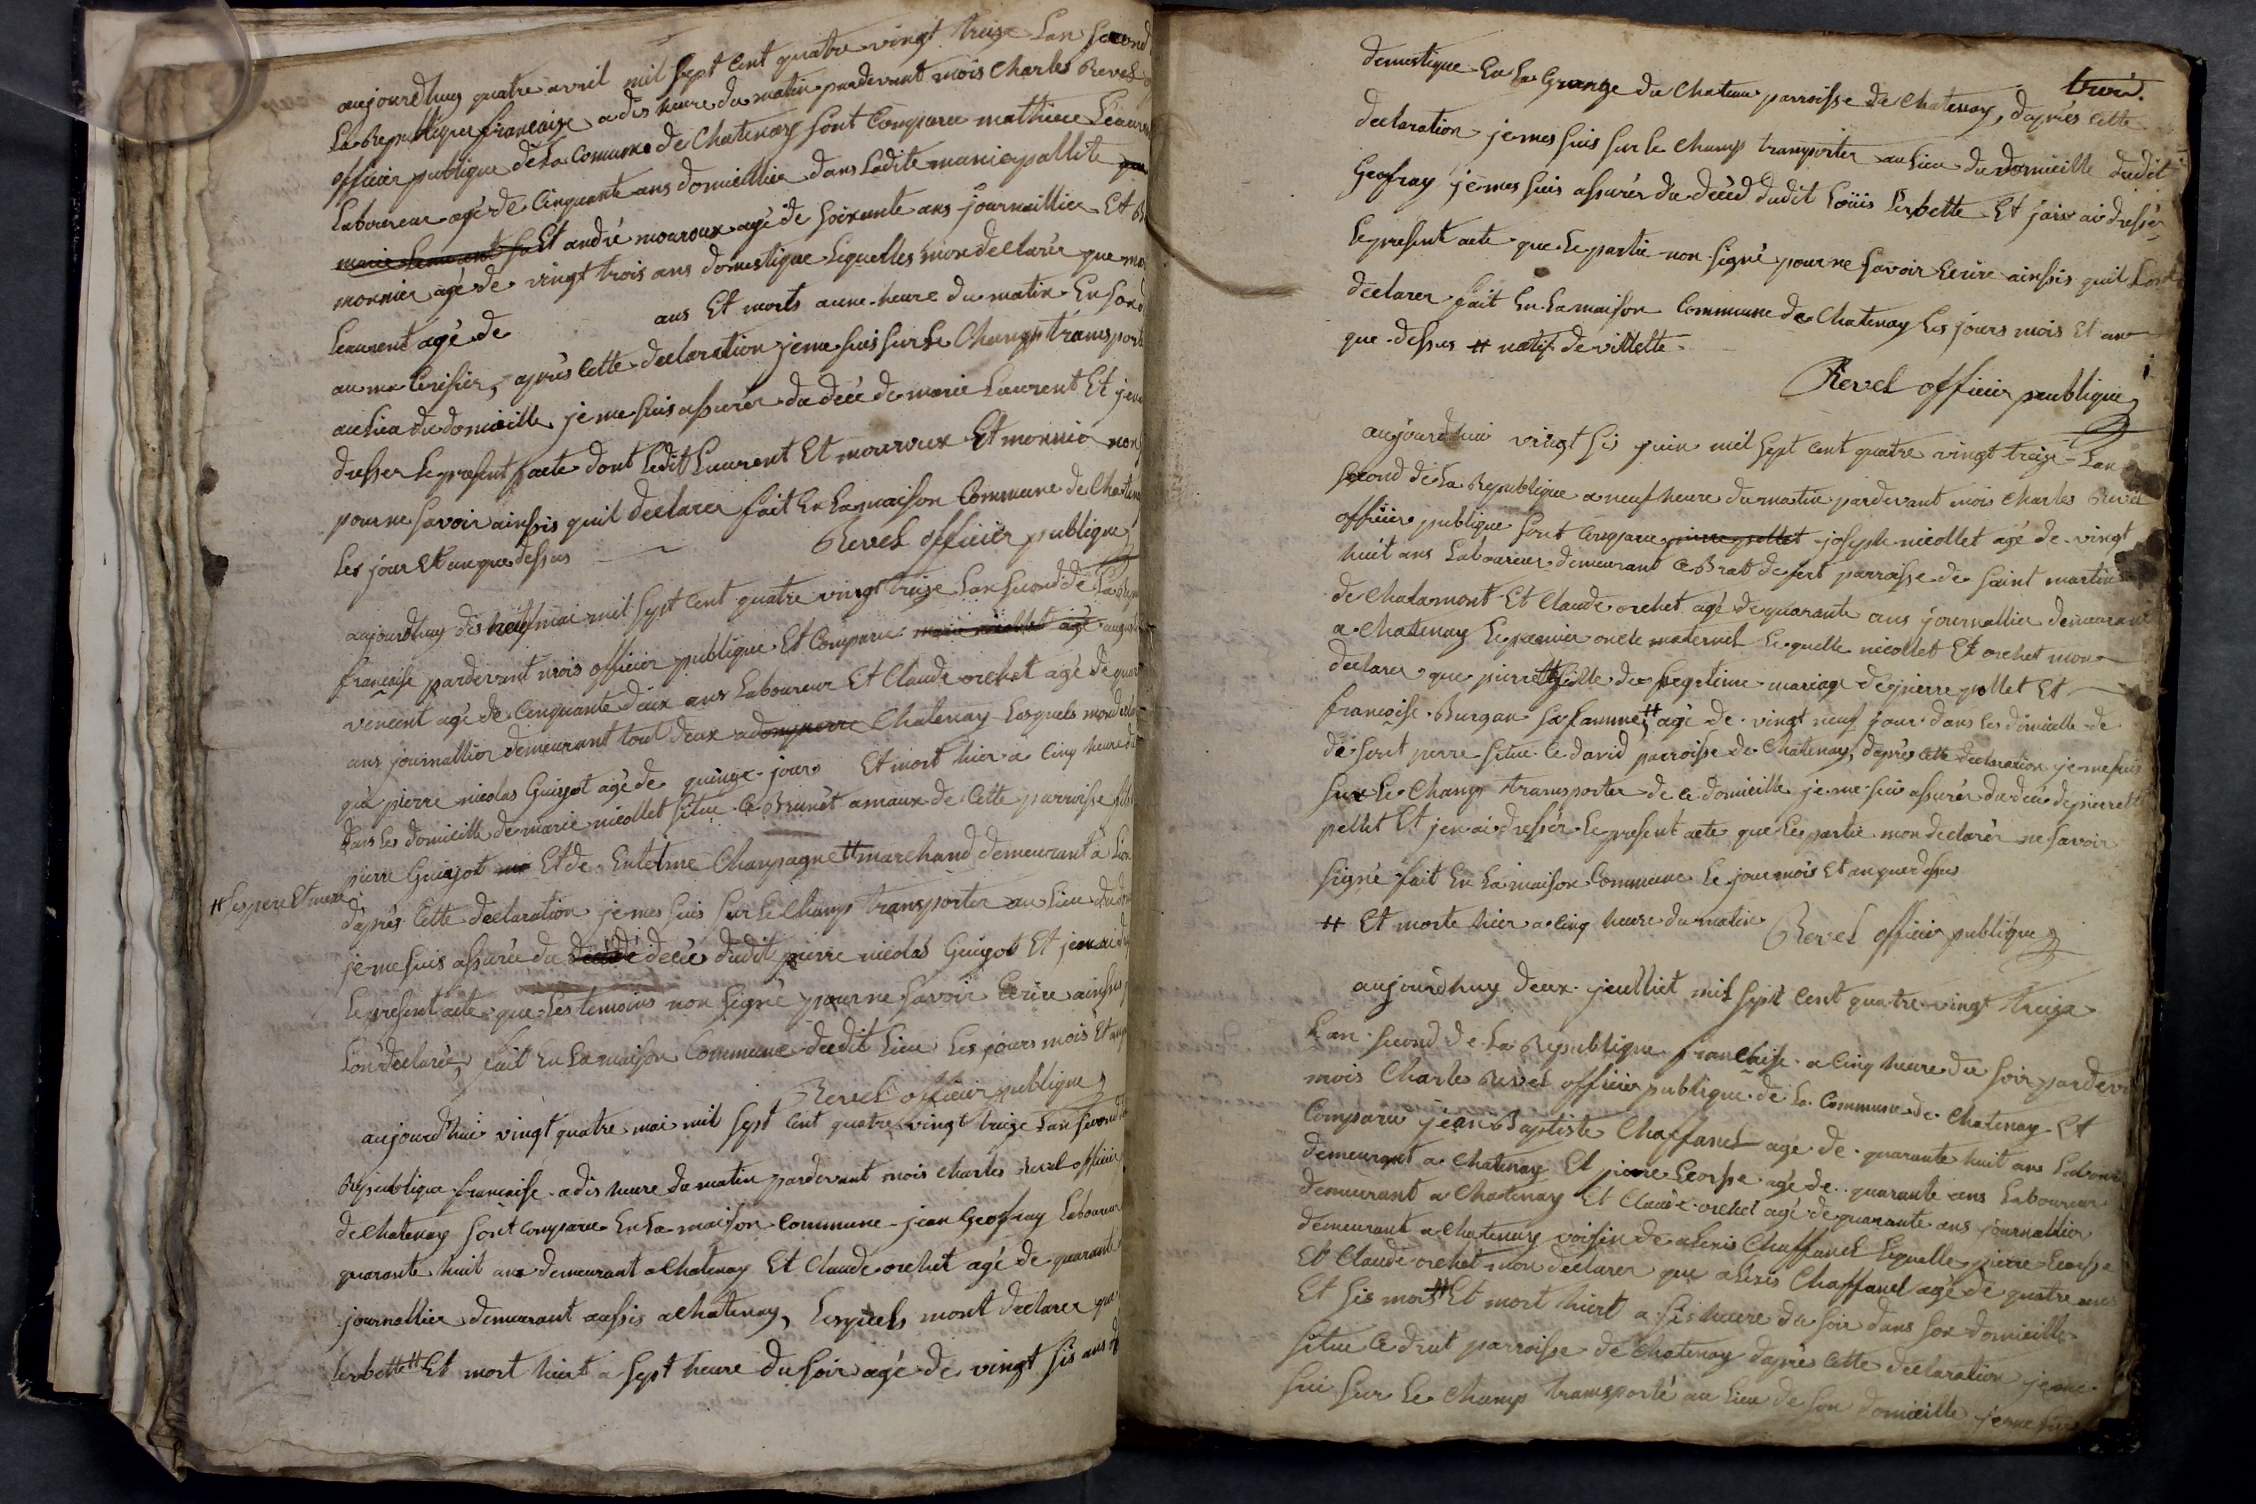 aujourdhuy quatre avril mil sept cent quatre vingt treize Lan second
La Republique francaize a dis heure du matin pardevant mois Charles Revel
officier publique de La Comune de Chatenay sont Comparu mathieu Leaurent
Laboureur agé de Cinquante ans domicillier dans Ladite municipallite
marie Leaurent Et andré mouroux agé de soixante ans journaillier Et
monnier agé de vingt trois ans domestique Lequelles mon declarér que
Leaurent agé de ans Et morts a une heure du matin En son
au ma Cerisier, aprés Cette declaration je me suis sur Le Champ transporté
au Lieu du domicille je me suis assurér du décé de marie Laurent Et jen
dresser Le present acte dont Ledit Laurent Et mouroux Et monnier non
pour ne savoir ainssis quil declarer fait En La maison Commune de Chatenay
Les jour Et an que dessus
Revel officier publique
aujourdhuy dis neuf mai mil sept Cent quatre vingt treize Lan second de La
francaise pardevant mois officier publique Et Comparu marie nicollet agé
vincent agé de Cinquante deux ans Laboureur Et Claude orchet agé de
ans journallier demeurant tout deux a Chatenay Lesquels mon
que pierre nicolas Guigot agé de quinze jours Et mort hier a Cinq heure
dans Les domicille de marie nicollet situé Le Brunét amaux de Cette parroisse
pierre Guigot Et de Entelme Champagne # marchand demeurant a
# ses pere Et mere
daprés Cette declaration je mes suis sur Le Champ transporter au Lieu du
je me suis assurée du decée dudit pierre nicolas Guigot Et jen ai
Le present acte que Les temoins non signé pour ne savoir Ecrire ainssis
Lon declarée, fait En La maison Commune dudit Lieu Les jours mois Et an
Revel officier publique
aujourdhui vingt quatre mai mil sept Cent quatre vingt treize Lan second
Republique francaise a dis heure du matin pardevant mois Charles Revel officier
de Chatenay sont Comparu En La maison Commune jean Geofray Laboureur
quarante huit ans demeurant a Chatenay Et Claude orchet agé de quarante
journallier demeurant aussis a Chatenay, Lesquels mont declarer que
Lerbette # Et mort hiert a sept heure du soir agé de vingt sis ans
trois.
domestique En La Grange du Chateau parroisse de Chatenay, daprés Cette
declaration je mes suis sur Le Champ transporter au Lieu du domicille dudit
Geofray je mes suis assurér du décéd dudit Loüis Lerbette Et jais ai dressér
Le present acte que Le partie non signé pour ne savoir Ecrire ainssis quil Lont
declarer fait En La maison Commune de Chatenay Les jours mois Et an
que dessus # natif de villette
Revel officier publique
aujourdhui vingt sis juin mil sept Cent quatre vingt treize Lan
second de La Republique a neuf heure du matin pardevant mois Charles Revel
officier publique sont Comparu pierre pollet joseph nicollet agé de vingt
huit ans Laboureur demeurant a Brat de fert parroisse de saint martin
de Chalamont Et Claude orchet agé de quarante ans journallier demeurant
a Chatenay Le premier oncle maternel Lequelle nicollet Et orchet mon
declarer que pierrette fille de Legetime mariage de pierre pollet Et
francoise Burgan sa famme # agé de vingt neuf jour dans Les domicille de
de sont perre situé Le david parroisse de Chatenay, daprés Cette declaration je me suis
sur Le Champ transporter de Ce domicille je me suis assurér du décé de pierrette
pollet Et jen ai dressér Le present acte que Les partie mon declarér ne savoir
signé fait En La maison Commune Le jour mois Et an que dessus
# Et morte hier a Cinq heure du matin
Revel officier publique
aujourdhuy deux jeulliet mil sept Cent quatre vingt treize
Lan second de La Republique francaise a Cinq heure du soir pardevant
mois Charles Revel officier publique de La Commune de Chatenay Et
Comparu jean Baptiste Chaffanel agé de quarante huit ans
demeurant a Chatenay Et pierre Ecorsse agé de quarante ans Laboureur
demeurant a Chatenay Et Claude orchet agé de quarante ans journallier
demeurant a Chatenay voisin de alexis Chaffanel Lequelle pierre Ecorsse
Et Claude orchet mon declarer que alexis Chaffanel agé de quatre ans
Et sis mois # Et mort hiert a sis heure du soir dans son domicille
situé Le drut parroisse de Chatenay daprés Cette declaration je me
sui sur Le Champ transporté au Lieu de son domicille je me suis